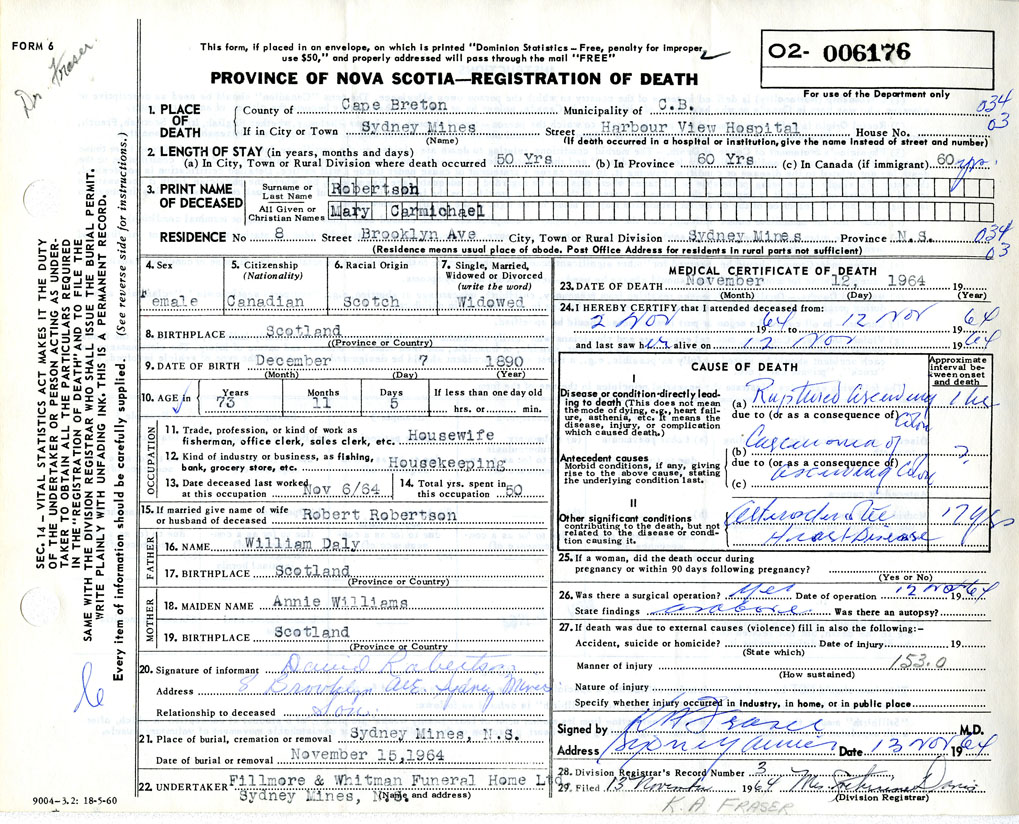 FORM 6
Dr. Fraser.
This form, if placed in an envelope, on which is printed "Dominion Statistics – Free, penalty for improper
use $50," and properly addressed will pass through the mail "FREE"
PROVINCE OF NOVA SCOTIA—REGISTRATION OF DEATH
O2- 006176
For use of the Department only
1. PLACE OF DEATH
County of Cape Breton Municipality of C.B. 034
If in City or Town Sydney Mines Street Harbour View Hospital House No. 03
(Name) (If death occurred in a hospital or institution, give the name instead of street and number)
2. LENGTH OF STAY (in years, months and days)
(a) In City, Town or Rural Division where death occurred 50 Yrs (b) In Province 60 Yrs (c) In Canada (if immigrant) 60 yrs.
3. PRINT NAME OF DECEASED
Surname or Last Name Robertson
All Given or Christian Names Mary Carmichael
RESIDENCE No 8 Street Brooklyn Ave City, Town or Rural Division Sydney Mines Province N.S. 034
03
(Residence means usual place of abode. Post Office Address for residents in rural parts not sufficient)
4. Sex
Female
5. Citizenship
(Nationality)
Canadian
6. Racial Origin
Scotch
7. Single, Married,
Widowed or Divorced
(write the word)
Widowed
8. BIRTHPLACE Scotland
((Province or Country)
9. DATE OF BIRTH December 7 1890
(Month) (Day) (Year)
10. AGE in
Years Months Days If less than one day old
73 11 5 hrs. or min.
OCCUPATION
11. Trade, profession, or kind of work as
fisherman, office clerk, sales clerk, etc. Housewife
12. Kind of industry or business, as fishing,
bank, grocery store, etc. Housekeeping
13. Date deceased last worked
at this occupation Nov 6/64
14. Total yrs. spent in
this occupation 50
15. If married give name of wife
or husband of deceased Robert Robertson
FATHER
16. NAME William Daly
17. BIRTHPLACE Scotland
(Province or Country)
MOTHER
18. MAIDEN NAME Annie Williams
19. BIRTHPLACE Scotland
(Province or Country)
20. Signature of informant David Robertson
Address 8 Brooklyn Ave. Sydney Mines
Relationship to deceased Son.
21. Place of burial, cremation or removal Sydney Mines, N.S.
Date of burial or removal November 15,1964
22. UNDERTAKER Fillmore & Whitman Funeral Home Ltd.
Sydney Mines, N.S. (Name and address)
MEDICAL CERTIFICATE OF DEATH
23. DATE OF DEATH November 12, 1964 19
(Month) (Day) (Year)
24. I HEREBY CERTIFY that I attended deceased from:
2 Nov 1964 to 12 Nov 1964
and last saw her alive on 12 Nov 1964
CAUSE OF DEATH
Approximate
interval between onset
and death
I
Disease or condition directly leading to death (This does not mean
the mode of dying, e.g., heart failure, asthenia, etc. It means the
disease, injury, or complication
which caused death.)
(a) Ruptured Ascending Colon
due to (or as a consequence of)
Antecedent causes
Morbid conditions, if any, giving
rise to the above cause, stating
the underlying condition last.
(b) Carcinoma of ?
due to (or as a consequence of)
ascending Colon
(c)
II
Other significant conditions
contributing to the death, but not
related to the disease or condition causing it.
Heart Disease
25. If a woman, did the death occur during
pregnancy or within 90 days following pregnancy?
(Yes or No)
26. Was there a surgical operation? Yes Date of operation 12 Nov 1964
State findings as above Was there an autopsy?
27. If death was due to external causes (violence) fill in also the following:–
Accident, suicide or homicide? Date of injury 19
(State which)
Manner of injury 153.0
(How sustained)
Nature of injury
Specify whether injury occurred in industry, in home, or in public place
Signed by K A Fraser M.D.
Address Sydney Mines Date 13 Nov 1964
28. Division Registrar's Record Number 3
29. Filed 13th November 1964 Mrs. Davis
(Division Registrar)
K. A. FRASER
SEC. 14—VITAL STATISTICS ACT MAKES IT THE DUTY
OF THE UNDERTAKER OR PERSON ACTING AS UNDERTAKER TO OBTAIN ALL THE PARTICULARS REQUIRED
IN THE "REGISTRATION OF DEATH" AND TO FILE THE
SAME WITH THE DIVISION REGISTRAR WHO SHALL ISSUE THE BURIAL PERMIT.
WRITE PLAINLY WITH UNFADING INK. THIS IS A PERMANENT RECORD.
Every item of information should be carefully supplied. (See reverse side for instructions.)
9004—3.2: 18-5-60